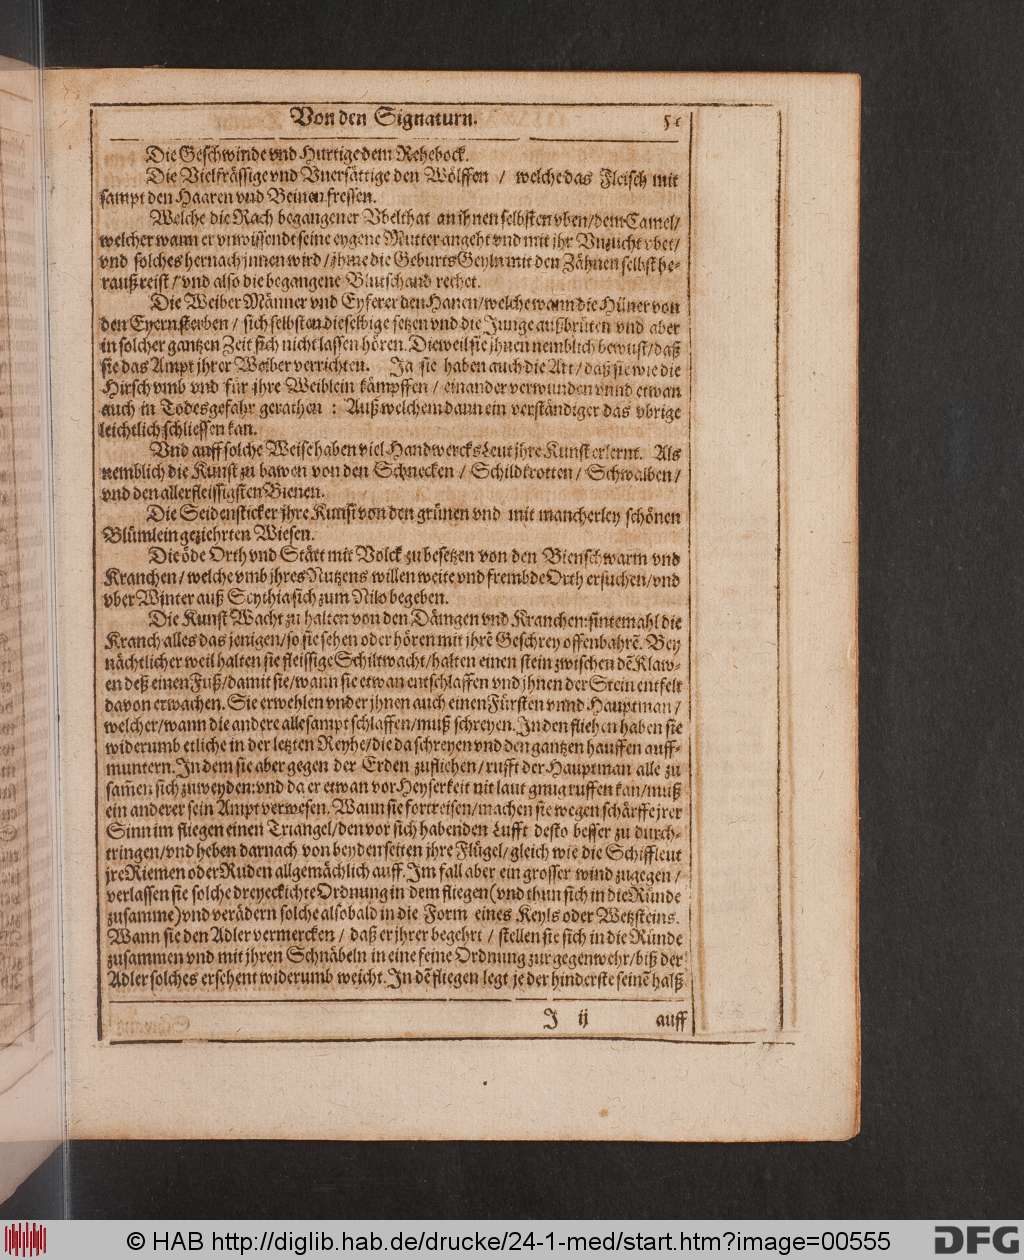 Von den Signaturn.
Die Geschwinde vnd Hurtige dem Rehebock.
Die Vielfrässige vnd Vnersättige den Wölffen / welche das Fleisch mit
sampt den Haaren vnd Beinen fressen.
Welche die Rach begangener Vbelthat an ihnen selbsten vben / dem Camel /
welcher wann er vnwissendt seine eygene Mutter angeht vnd mit jhr Vnzucht vbet /
vnd solches hernach jnnen wird / jhme die Geburts Geyln mit den Zähnen selbst he-
rauß reist / vnd also die begangene Blutschand rechet.
Die Weiber Männer vnd Eyferer den Hanen / welche wann die Hüner von
den Eyern sterben / sich selbsten dieselbige setzen vnd die Junge außbrüten vnd aber
in solcher gantzen Zeit sich nicht lassen hören. Dieweil sie jhnen nemblich bewust / daß
sie das Ampt jhrer Weiber verrichten. Ja sie haben auch die Art / daß sie wie die
Hirsch vmb vnd für jhre Weiblein kämpffen / einander verwunden vnnd etwan
auch in Todesgefahr gerathen : Auß welchem dann ein verständiger das vbrige
leichtlich schliessen kan.
Vnd auff solche Weise haben viel Handwercks Leut jhre Kunst erlernt. Als
nemblich die Kunst zu bawen von den Schnecken / Schildkrotten / Schwalben /
vnd den allerfleissigsten Bienen.
Die Seidensticker jhre Kunst von den grünen vnd mit mancherley schönen
Blümlein geziehrten Wiesen.
Die öde Orth vnd Stätt mit Volck zu besetzen von den Bienschwarm vnd
Kranchen / welche vmb jhres Nutzens willen weite vnd frembde Orth ersuchen / vnd
vber Winter auß Scythia sich zum Nilo begeben.
Die Kunst Wacht zu halten von den Däingen vnd Kranchen: sintemahl die
Kranch alles das jenigen / so sie sehen oder hören mit jhrē Geschrey offenbahrē. Bey
nächtlicher weil halten sie fleissige Schiltwacht / halten einen stein zwischen dē Klaw-
en deß einen Fuß / damit sie / wann sie etwan entschlaffen vnd jhnen der Stein entfelt
davon erwachen. Sie erwehlen vnder jhnen auch einen Fürsten vnnd Hauptman /
welcher / wann die andere allesampt schlaffen / muß schreyen. In den fliehen haben sie
widerumb etliche in der letzten Reyhe / die da schreyen vnd den gantzen hauffen auff-
muntern. In dem sie aber gegen der Erden zufliehen / rufft der Hauptman alle zu
samen sich zuweyden: vnd da er etwan vor Heyserkeit nit laut gnug ruffen kan / muß
ein anderer sein Ampt verwesen. Wann sie fortreisen / machen sie wegen schärffe jrer
Sinn im fliegen einen Triangel / den vor sich habenden Lufft desto besser zu durch-
tringen / vnd heben darnach von beyden seiten jhre Flügel / gleich wie die Schiffleut
jre Riemen oder Ruden allgemächlich auff. Im fall aber ein grosser wind zugegen /
verlassen sie solche dreyeckichte Ordnung in dem fliegen (vnd thun sich in die Ründe
zusamme) vnd verädern solche alsobald in die Form eines Keyls oder Wetzsteins.
Wann sie den Adler vermercken / daß er jhrer begehrt / stellen sie sich in die Ründe
zusammen vnd mit jhren Schnäbeln in eine feine Ordnung zur gegenwehr / biß der
Adler solches ersehent widerumb weicht. In dē fliegen legt jeder hinderste seinē halß
J ij auff
© HAB http://diglib.hab.de/drucke/24-1-med/start.htm?image=00555
DFG